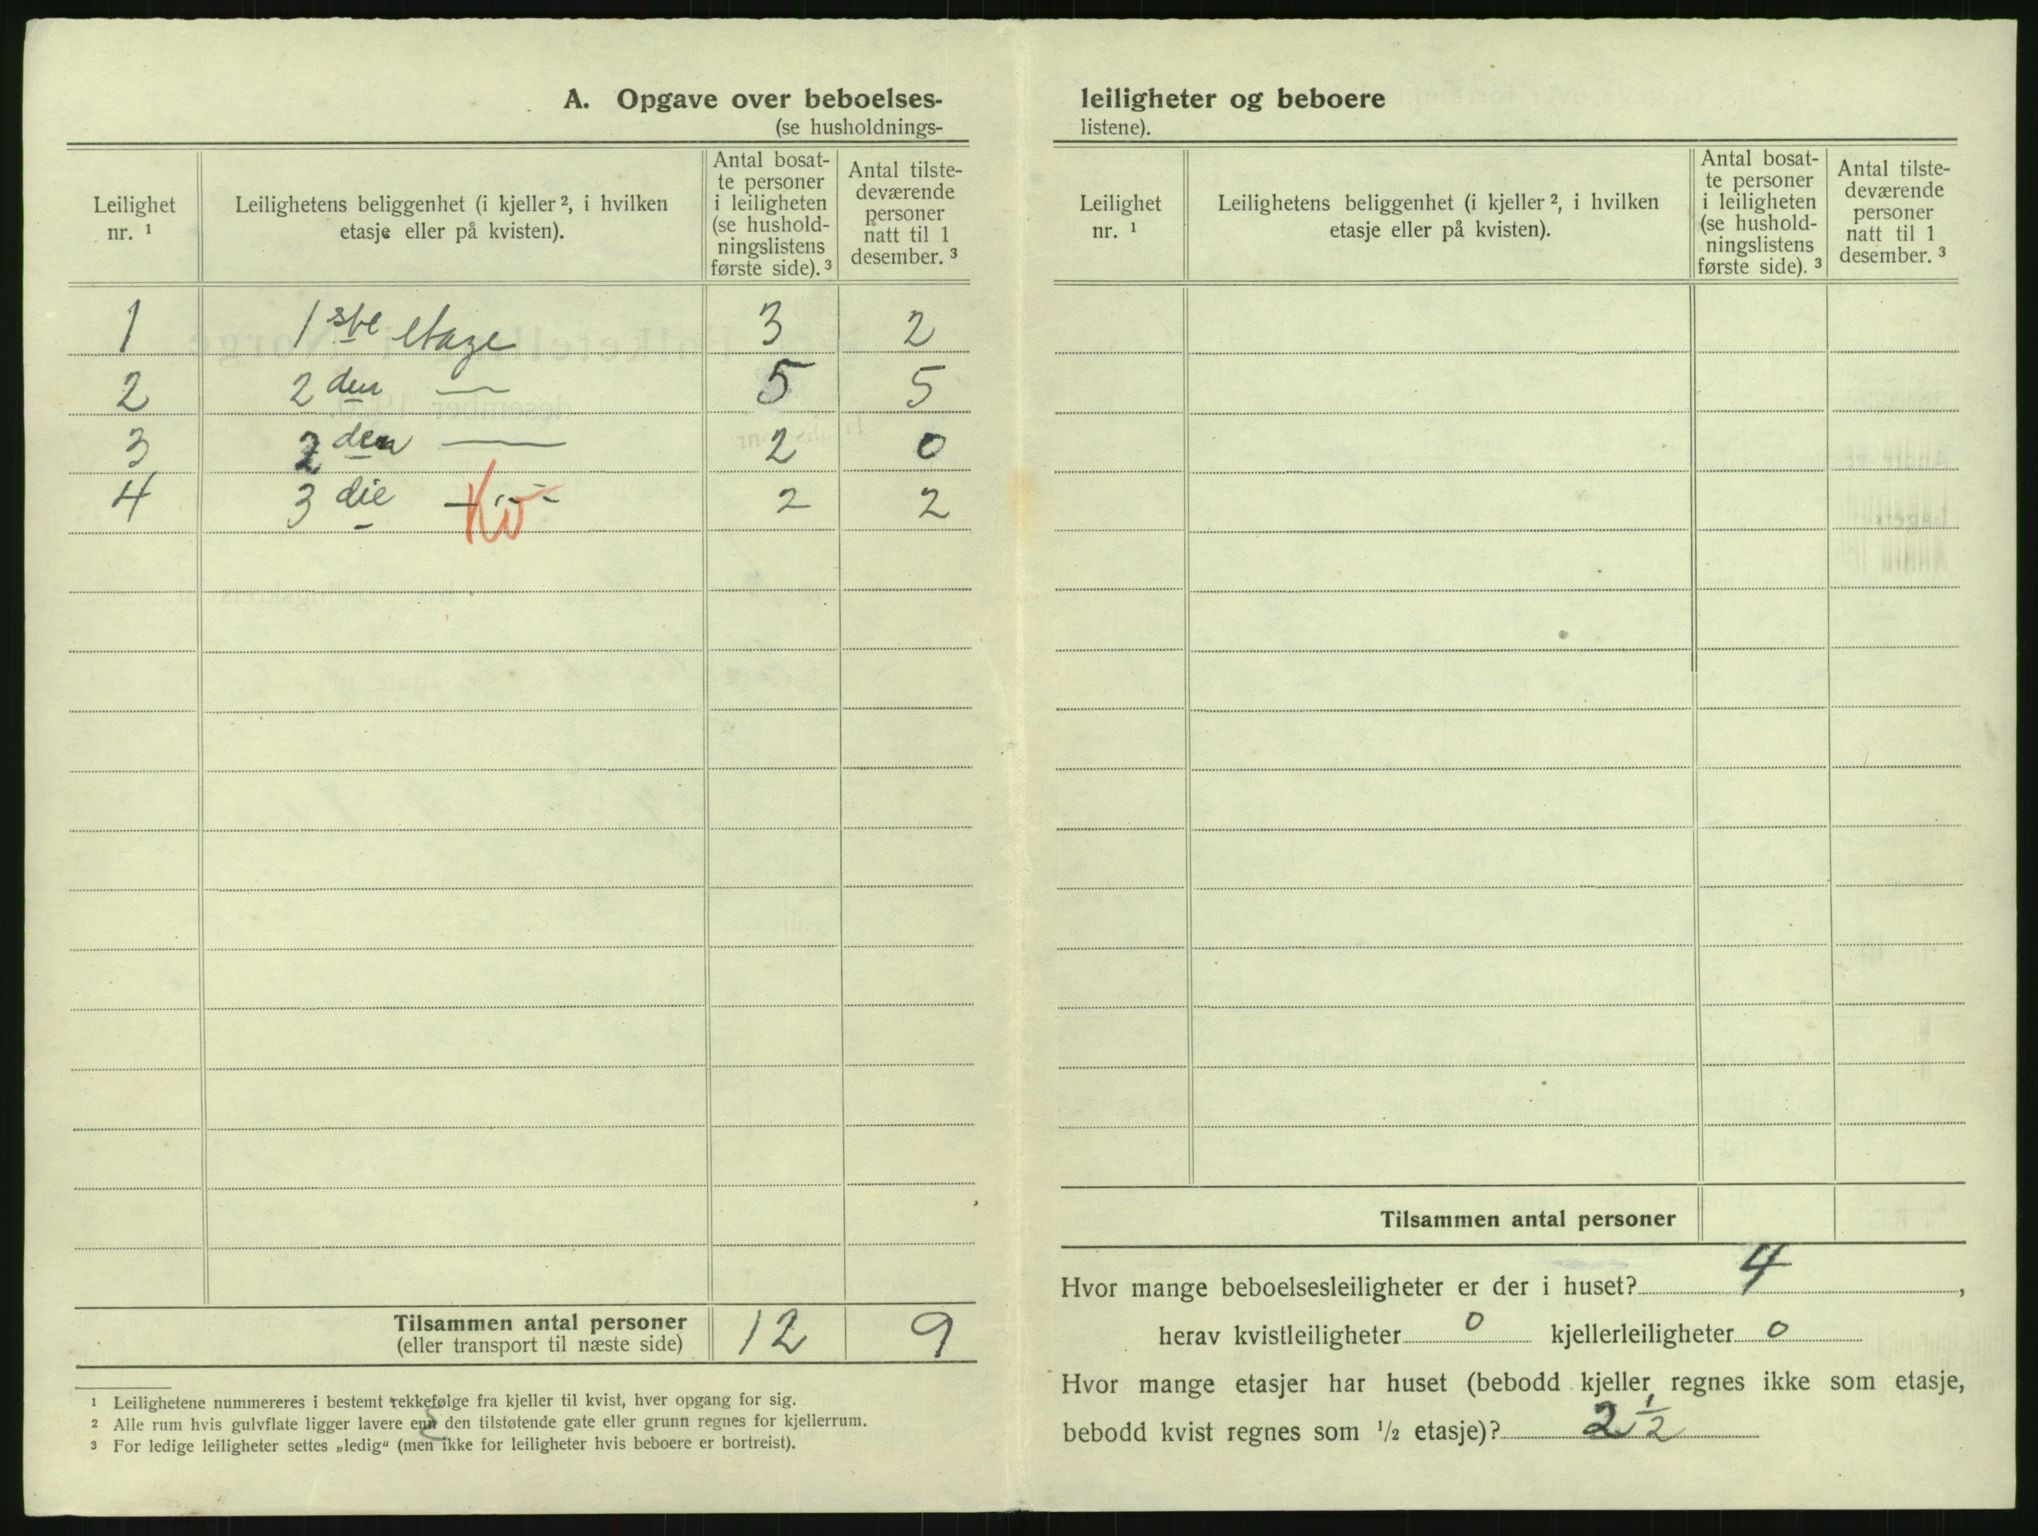 A. Opgave over beboelses-
(se husholdnings-
Leilighet nr. ¹
Leilighetens beliggenhet (i kjeller ², i hvilken
etasje eller på kvisten).
Antal bosat-
te personer
i leiligheten
(se hushold-
ningslistens
første side). ³
Antal tilste-
deværende
personer
natt til 1
desember. ³
1 1ste etage 3 2
2 2den — 5 5
3 2den — 2 0
4 3die — Kv 2 2
Tilsammen antal personer 12 9
(eller transport til næste side)
¹ Leilighetene nummereres i bestemt rekkefølge fra kjeller til kvist, hver opgang for sig.
² Alle rum hvis gulvflate ligger lavere enn den tilstøtende gate eller grunn regnes for kjellerrum.
³ For ledige leiligheter settes „ledig“ (men ikke for leiligheter hvis beboere er bortreist).
leiligheter og beboere
listene).
Leilighet
nr. ¹
Leilighetens beliggenhet (i kjeller ², i hvilken
etasje eller på kvisten).
Antal bosat-
te personer
i leiligheten
(se hushold-
ningslistens
første side). ³
Antal tilste-
deværende
personer
natt til 1
desember. ³
Tilsammen antal personer
Hvor mange beboelsesleiligheter er der i huset? 4,
herav kvistleiligheter 0 kjellerleiligheter 0
Hvor mange etasjer har huset (bebodd kjeller regnes ikke som etasje,
bebodd kvist regnes som ¹/₂ etasje)? 2 1/2